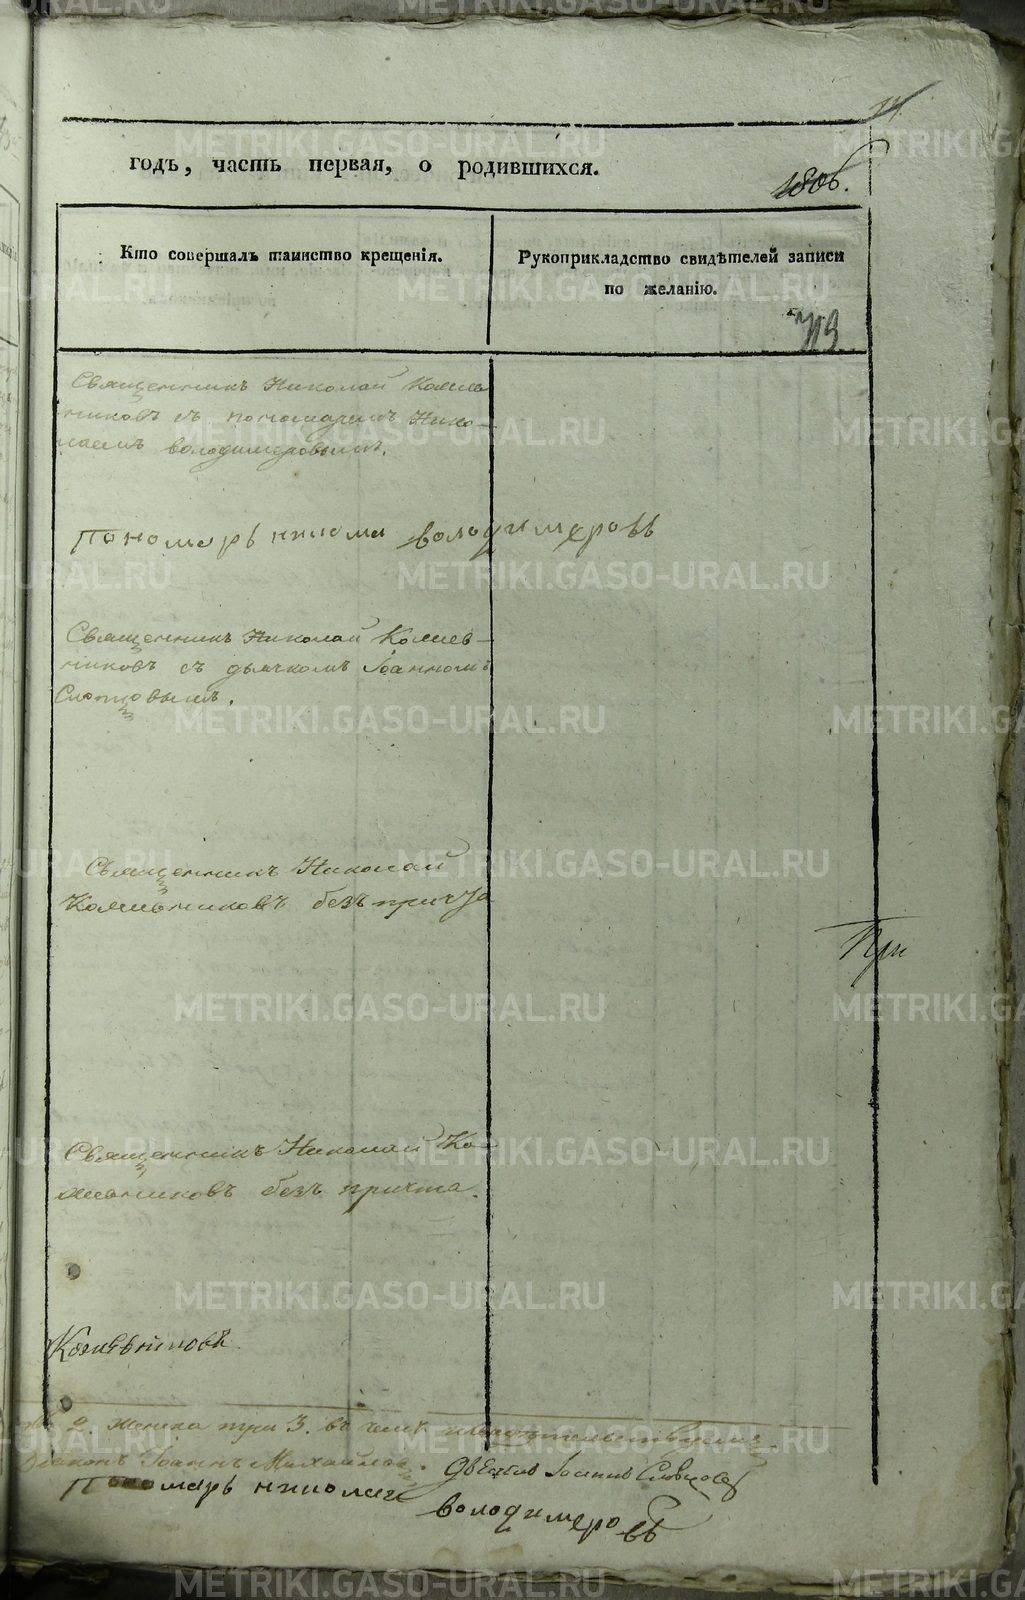 годъ, часть первая, о родившихся.
Кто совершалъ таинство крещенія.
Рукоприкладство свидѣтелей записи
по желанію.
Священникъ Николай Кожев
никовъ съ пономаремъ Нико-
лаемъ Володимеровымъ.
Пономарь николаи володимеровъ
Священникъ Николай Кожев-
никовъ съ дьячкомъ Іоанномъ
Словцовымъ.
Священникъ Николай
Кожевниковъ безъ причта
Священникъ Николай Ко-
жевниковъ безъ причта.
При
Кожевниковъ
2. женска три 3. въ чемъ
Іоаннъ Михайловъ. Іоаннъ Словцовъ
Пономарь николаи
володимеровъ
METRIKI.GASO-URAL.RU